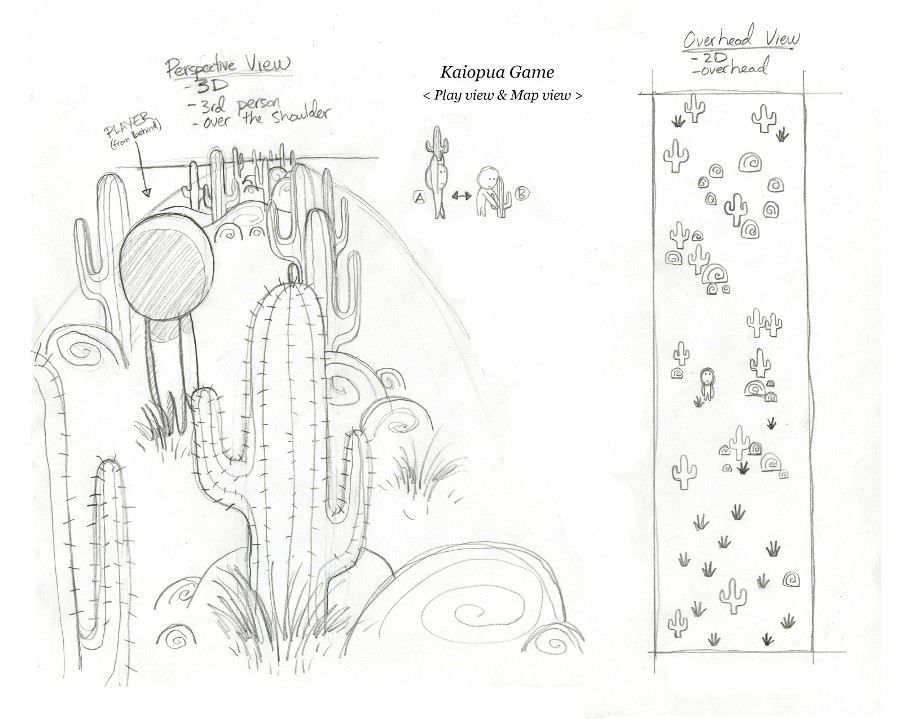 Perspective View
- 3D
- 3rd person
- over the shoulder
PLAYER
(from behind)
Kaiopua Game
< Play view & Map view >
A
B
Overhead View
- 2D
- overhead